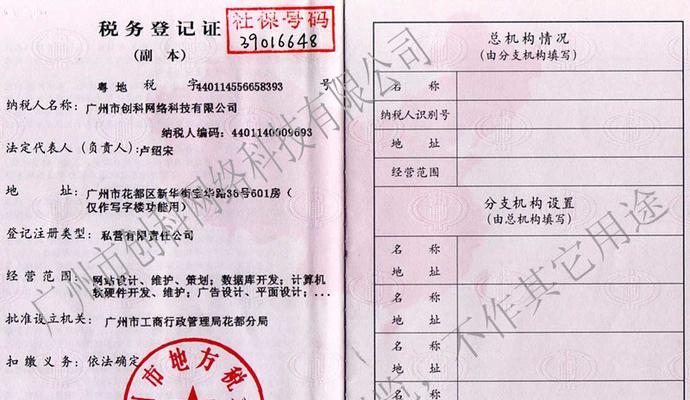 税务登记证
(副 本)
社保号码
39016648
粤 地 税 字 440114556658393 号
纳税人名称: 广州市创科网络科技有限公司
纳税人编码: 4401140009693
法定代表人(负责人): 卢绍宋
地 址: 广州市花都区新华街宝华路36号601房(
仅作写字楼功能用)
登记注册类型: 私营有限责任公司
经营范围: 网站设计、维护、策划; 数据库开发; 计算机
软硬件开发、维护; 广告设计、平面设计; ...
批准设立机关: 广州市工商行政管理局花都分局
扣缴义务: 依法确定
市地方税
总机构情况
(由分支机构填写)
名 称
纳税人识别号
地 址
经营范围
分支机构设置
(由总机构填写)
名 称
地 址
名 称
地 址
名 称
地 址
名 称
广州市创科网络科技有限公司
,不作其它用途